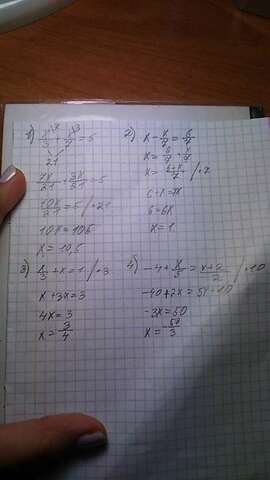 1) x/3 + x/7 = 5
21
7x/21 + 3x/21 = 5
10x/21 = 5 /·21
10x = 105
x = 10,5
2) x - x/7 = 6/7
x = 6/7 + x/7
x = 6+x/7 /·7
6 = 6x
x = 1
3) x/3 + x = 1 /·3
x + 3x = 3
4x = 3
x = 3/4
4) -4 + x/5 = x+2/2 /·10
-40 + 2x = 5x + 10
-3x = 50
x = -50/3